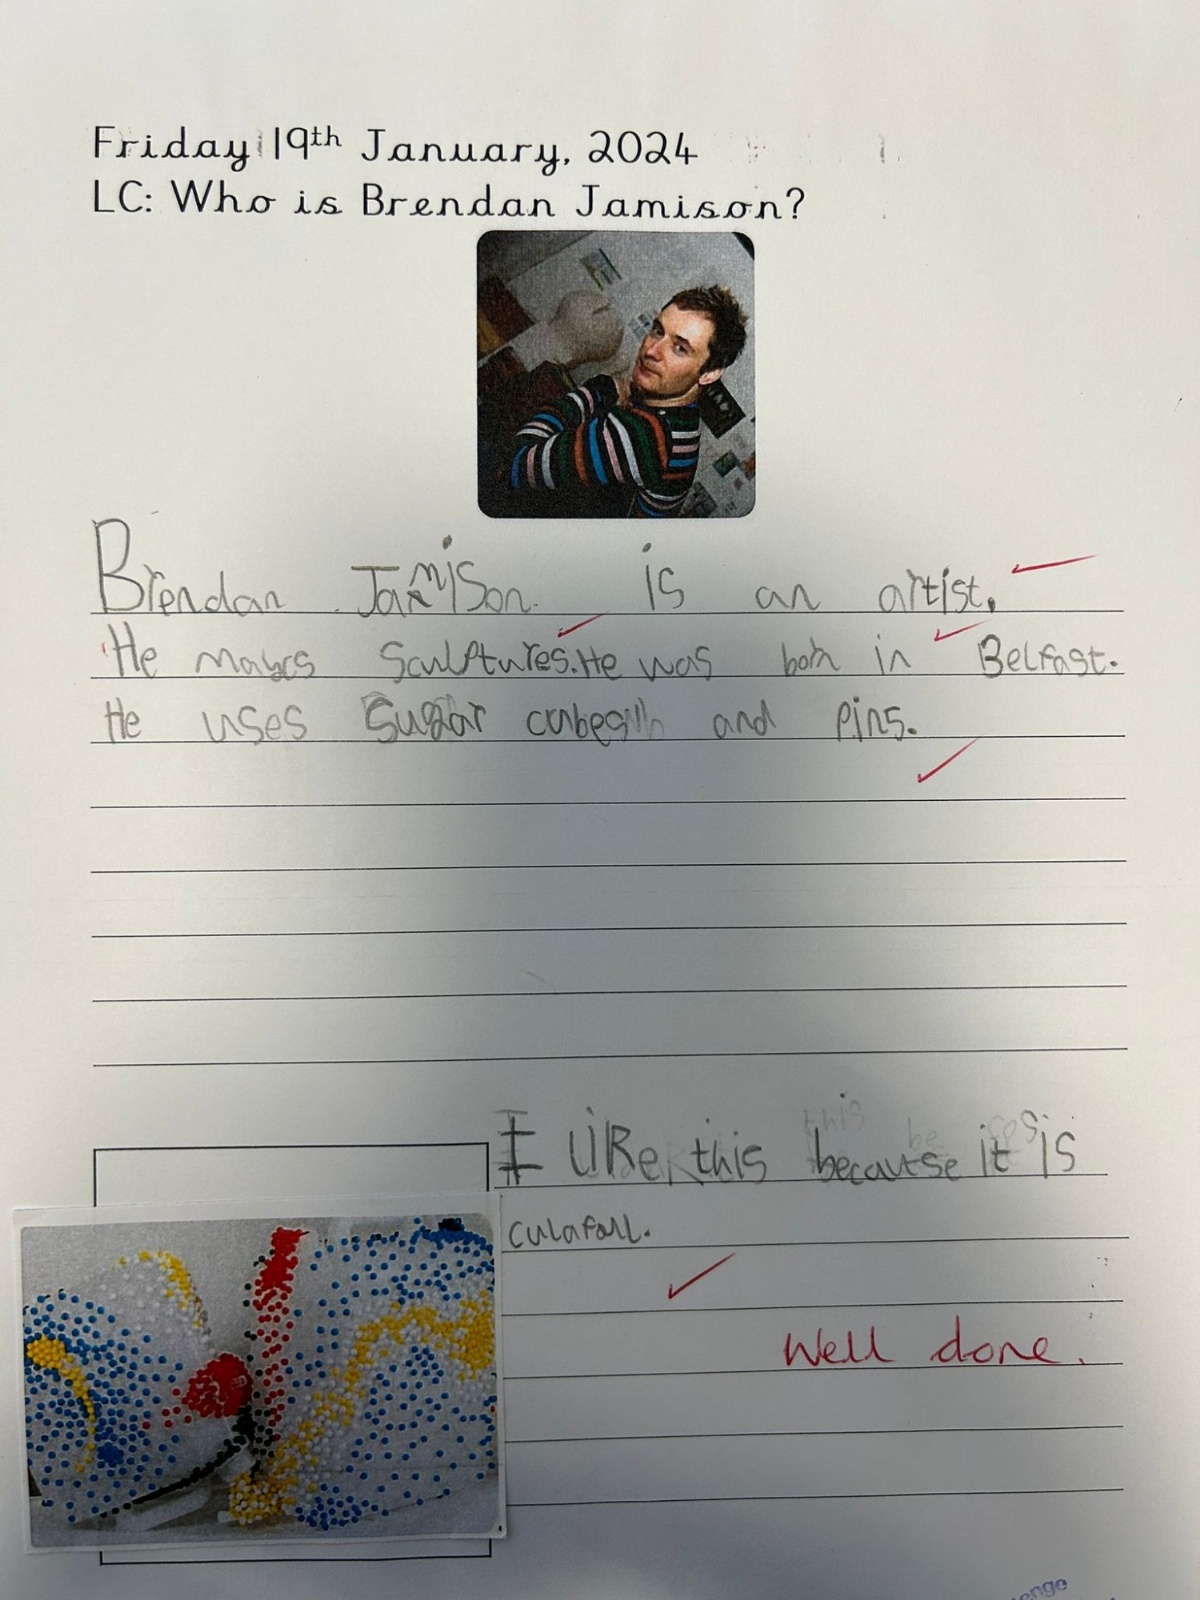 Friday 19th January, 2024
LC: Who is Brendan Jamison?
Brendan Jamison is an artist.
He makes Sculptures. He was born in Belfast.
He uses Sugar cubes and Pins.
I like this because it is
culafall.
Well done.
enge